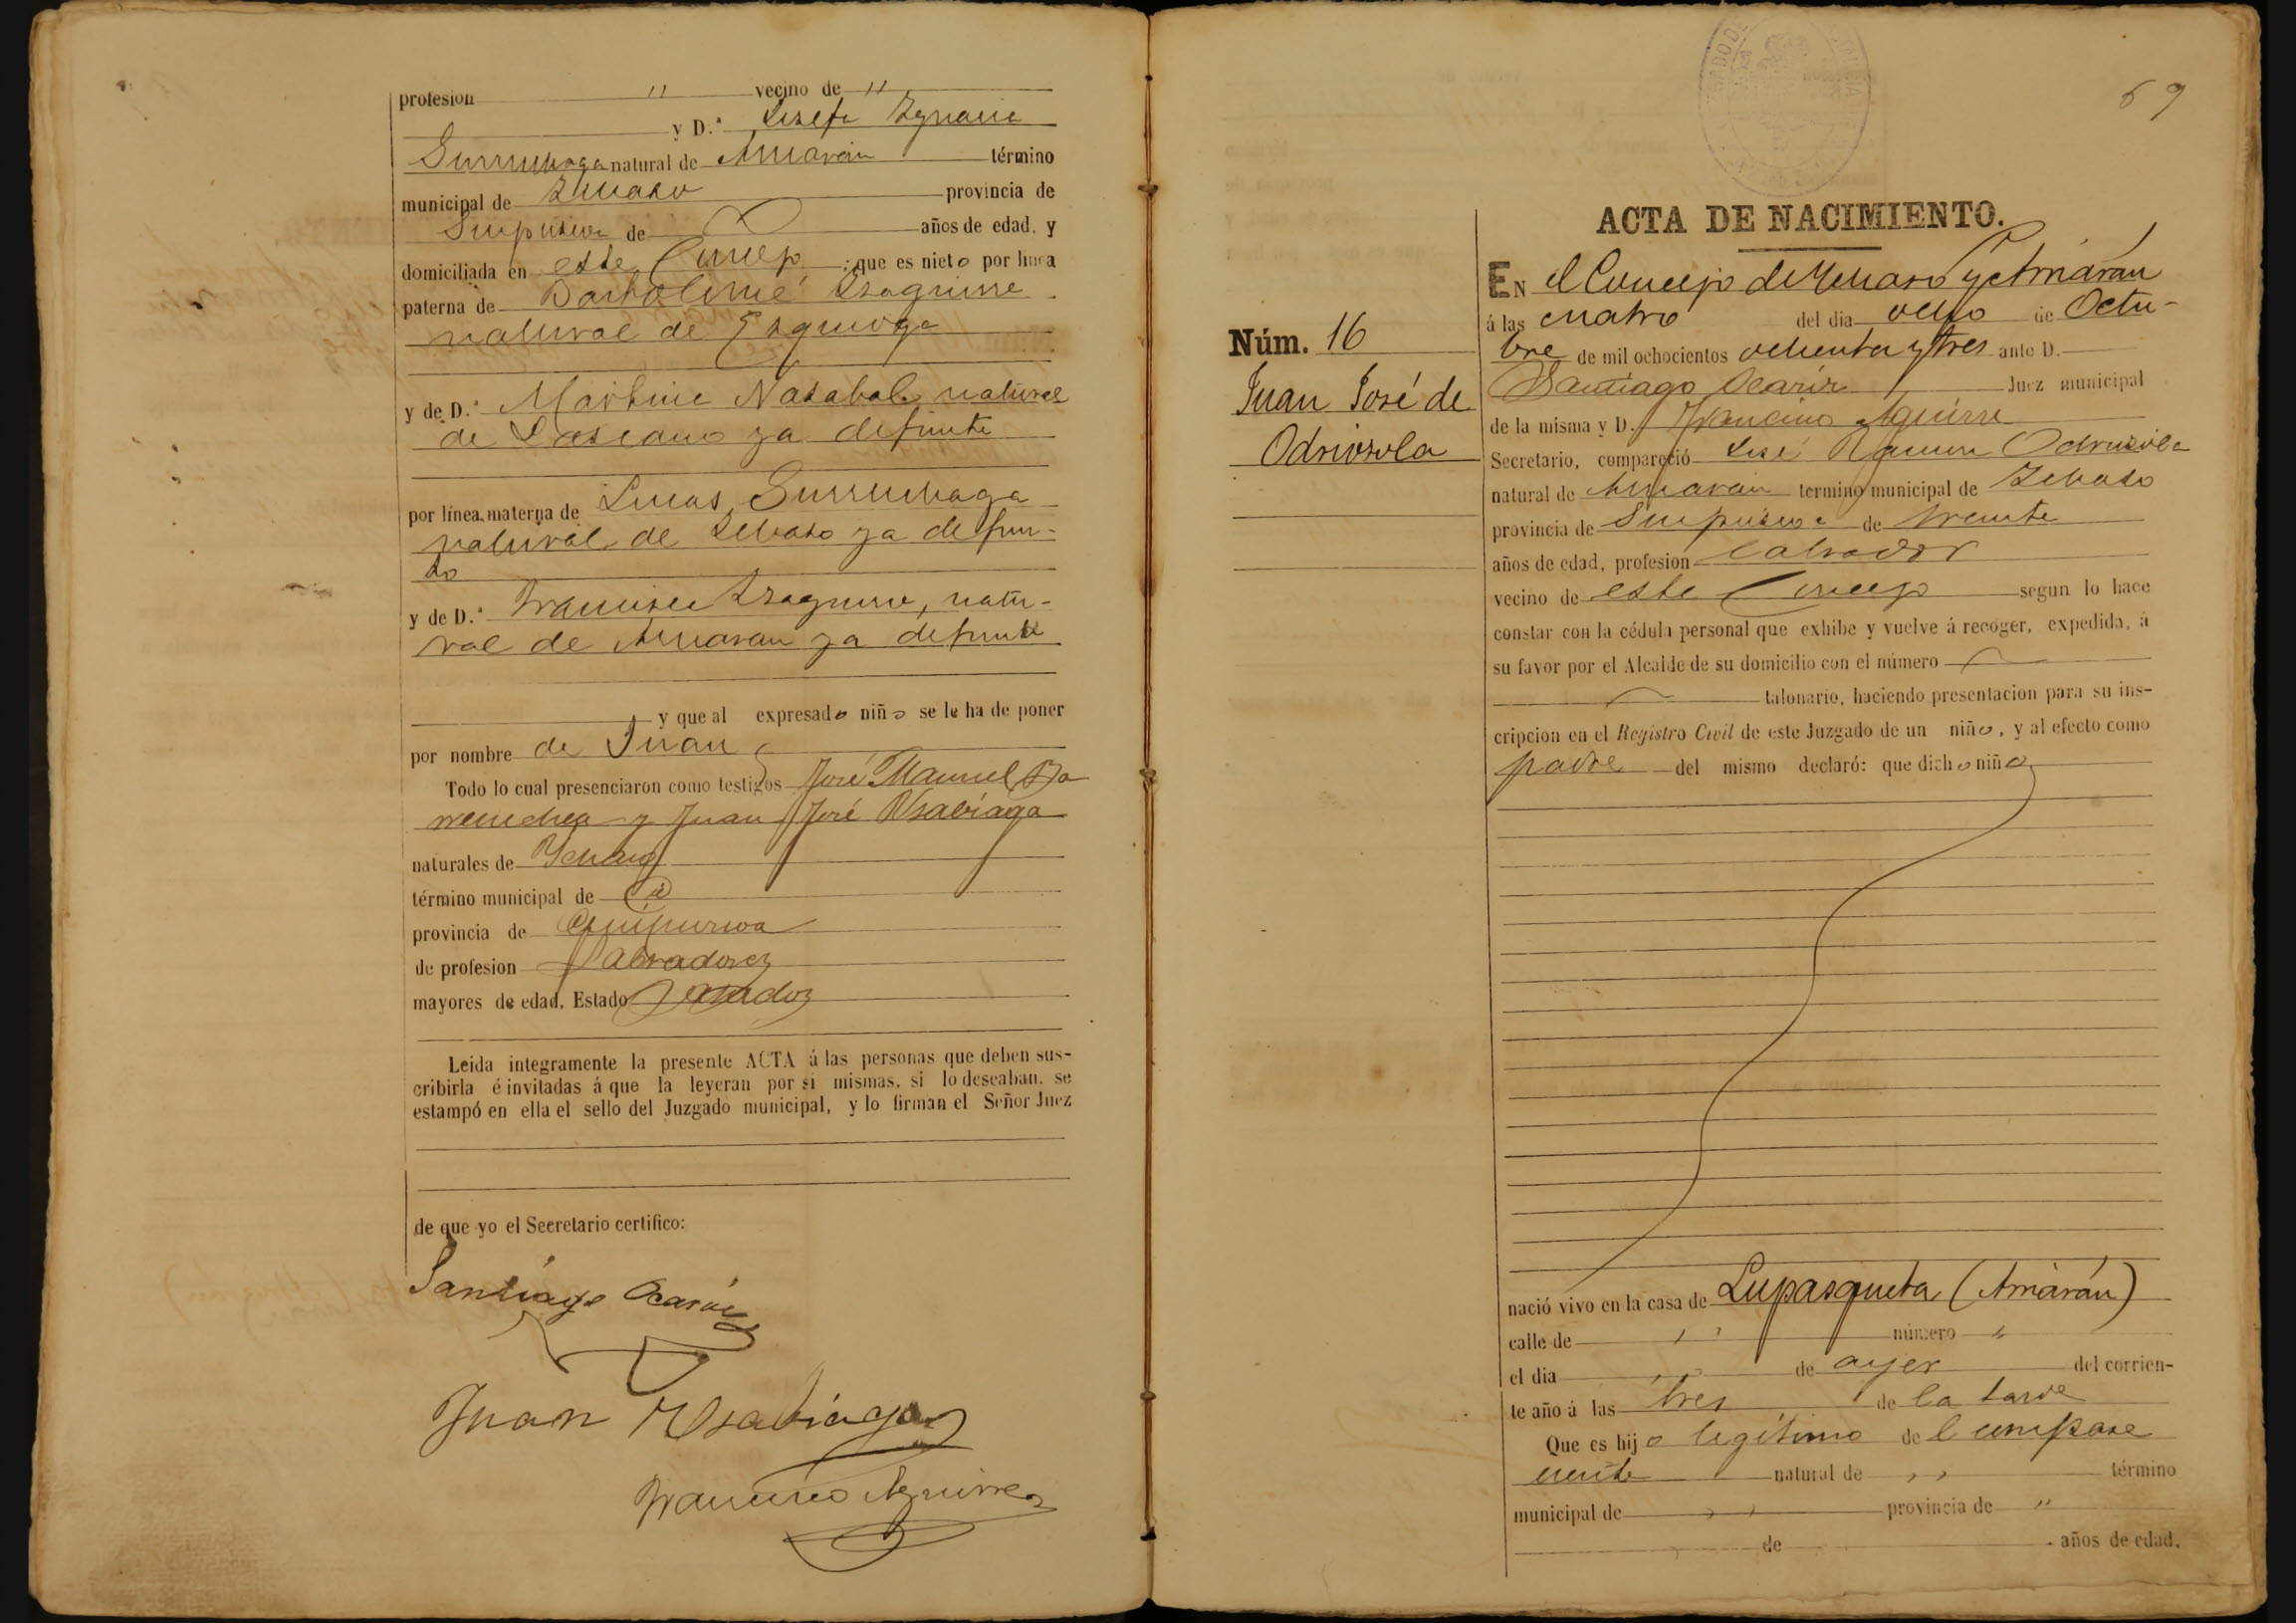 profesion " vecino de "
y D.ª Josefa Ygnacia
Gurruchaga natural de Arriarán término
municipal de Ychaso provincia de
Guipuzcoa de años de edad, y
domiciliada en este Concejo ; que es nieto por linea
paterna de Bartolomé Yzaguirre
natural de Ezquioga
y de D.ª Martina Nazabal natural
de Lazcano ya difunta
por línea materna de Lucas Gurruchaga
natural de Ychaso ya defun-
to
y de D.ª Francisca Yzaguirre, natu-
ral de Arriaran ya difunta
y que al expresado niño se le ha de poner
por nombre de Juan
Todo lo cual presenciaron como testigos José Manuel Ba
rrenechea y Juan José Usabiaga
naturales de Ychaso
término municipal de id
provincia de Guipuzcoa
de profesion Labradores
mayores de edad, Estado casados
Leida integramente la presente ACTA á las personas que deben sus-
cribirla é invitadas á que la leyeran por si mismas, si lo deseaban, se
estampó en ella el sello del Juzgado municipal, y lo firman el Señor Juez
de que yo el Secretario certifico:
Santiago Ocariz
Juan Usabiaga
Francisco Aguirre
69
ACTA DE NACIMIENTO.
Núm. 16
Juan José de
Odriozola
EN el Concejo de Ychaso y Arriarán
á las cuatro del dia ocho de Octu-
bre de mil ochocientos ochenta y tres ante D.
Santiago Ocariz Juez municipal
de la misma y D. Francisco Aguirre
Secretario, compareció José Ramon Odriozola
natural de Arriaran termino municipal de Ychaso
provincia de Guipúzcoa de treinta
años de edad, profesion labrador
vecino de este Concejo segun lo hace
constar con la cédula personal que exhibe y vuelve á recoger, expedida, á
su favor por el Alcalde de su domicilio con el número
talonario, haciendo presentacion para su ins-
cripcion en el Registro Civil de este Juzgado de un niño, y al efecto como
padre del mismo declaró: que dicho niño
nació vivo en la casa de Lupasqueta (Arriarán)
calle de " número "
el dia " de ayer del corrien-
te año á las tres de la tarde
Que es hijo legítimo del compare
ciente natural de " término
municipal de " provincia de "
de años de edad.